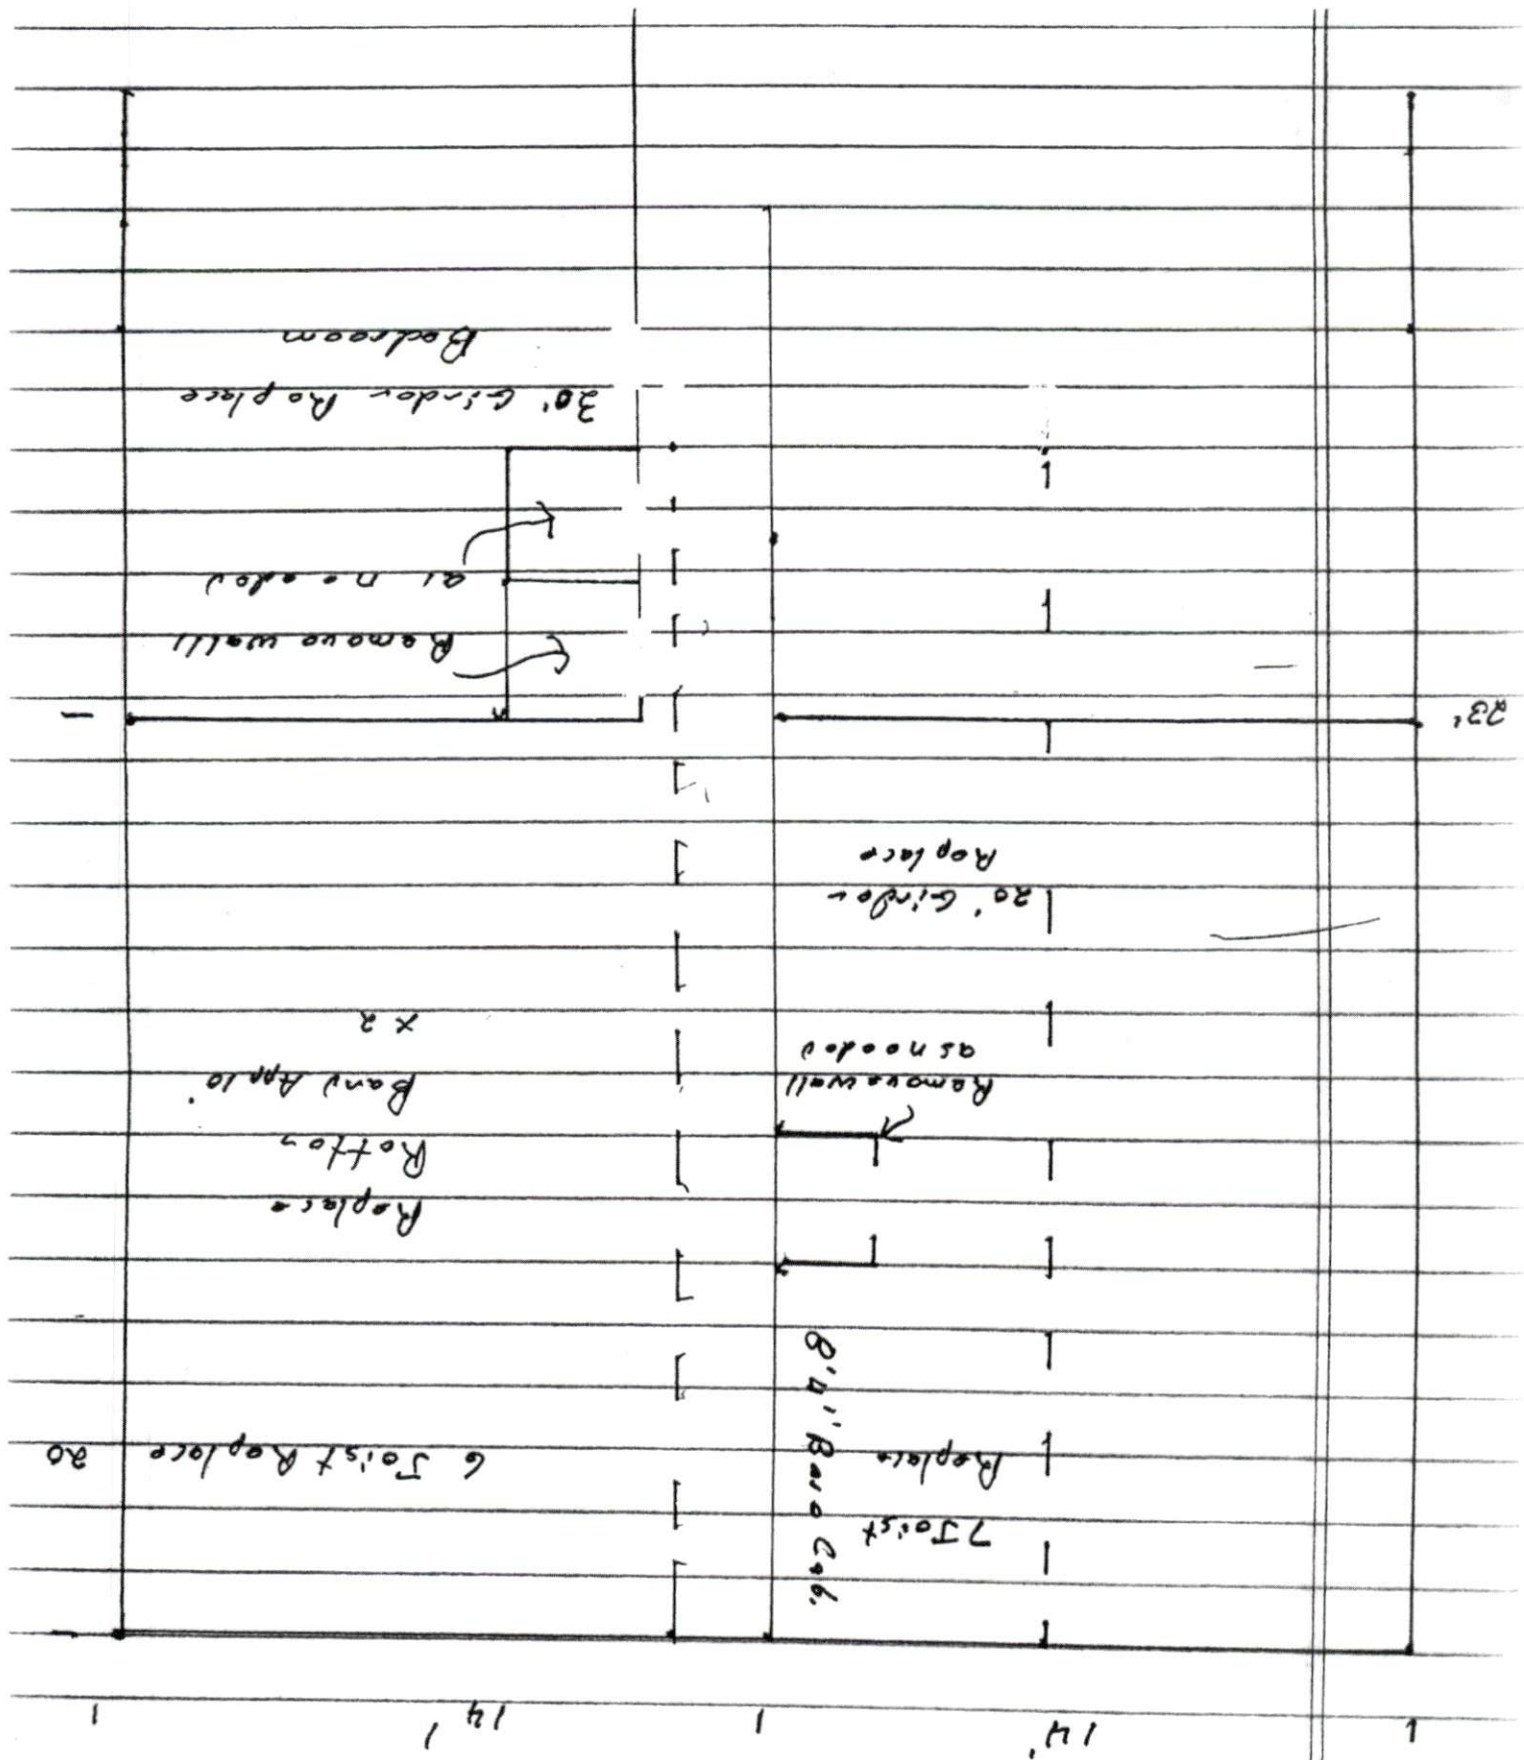 14'
14'
7 Joist
Replace
8'4" Base Cab.
6 Joist Replace
20
Replace
Rotten
Band App 10'
x 2
Remove wall
as needed
20' Girder
Replace
23'
Remove walls
as needed
30' Girder Replace
Bedroom